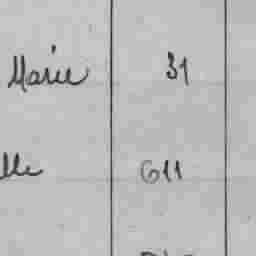 Marie 31
lle 611